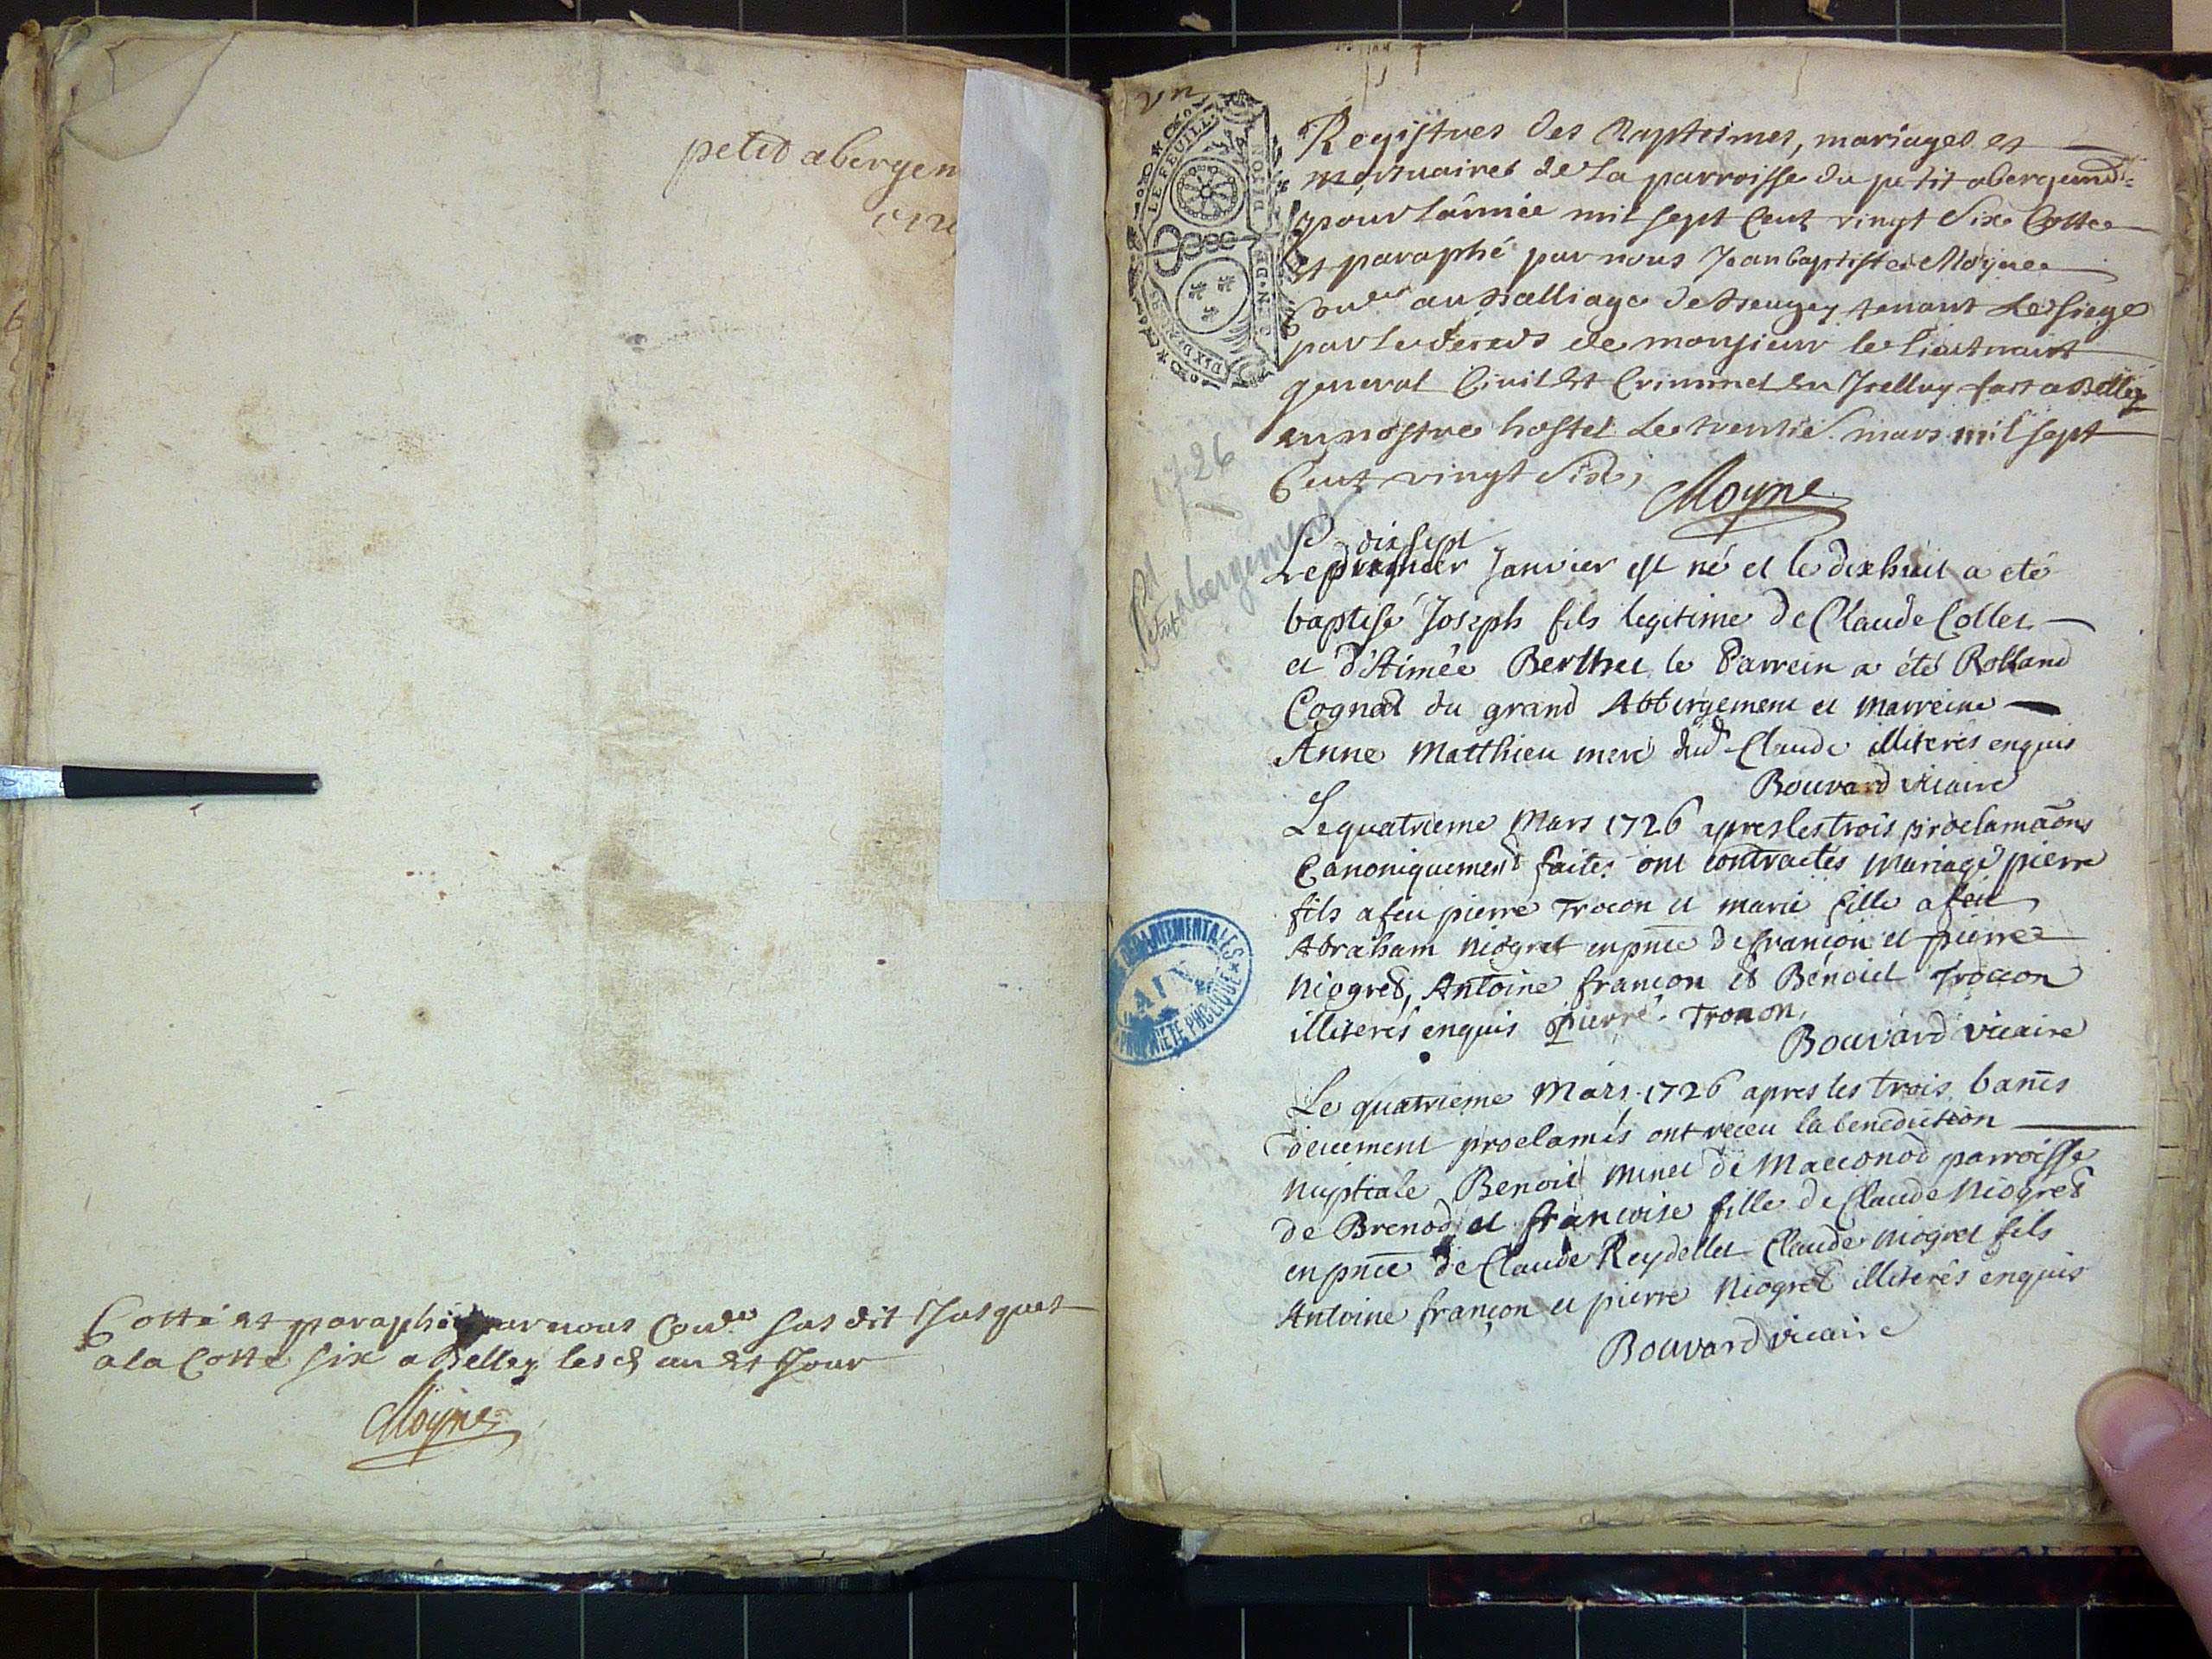 petit abergem
Cotté et paraphé par nous Con.er susdit Jusques
a la Cotte six a Belley lesd an et Jour
Moyne
vn
LE FEUILL.
DIJON
Registres des Baptesmes, mariages et
mortuaires de La parroisse du petit abergemd.t
pour l'année mil sept Cent vingt Six Cotté
et paraphé par nous Jean baptiste Moyne
Con.er au Balliage de Beugey tenant Le siege
par le deceds de monsieur le Lieutenant
general Civil et Criminel en Icelluy fait a Belley
en nostre hostel Le trentie mars mil sept
Cent vingt Six,
Moyne
1726
Petit Abergement
le dixsept
Le premier Janvier est né et le dixhuit a eté
baptisé Joseph fils legitime de Claude Collet
et d'Aimée Berthet le Parrein a été Rolland
Cognat du grand Abbergement et marreine
Anne Matthieu mere dud Claude illiterés enquis
Bouvard vicaire
Le quatrieme Mars 1726 apres les trois proclamaons
Canoniquement faites ont contractés mariage pierre
fils a feu pierre Trocon et marie fille a feu
Abraham Niogret en pnce de françon et pierre
Niogret, Antoine françon et Benoict Troccon
illiterés enquis pierre Trocon,
Bouvard vicaire
Le quatrieme Mars 1726 apres les trois banes
deuement proclamés ont receu la benediction
nuptiale Benoit Minet de Macconod parroisse
de Brenod et francoise fille de Claude Niogret
en pnce de Claude Reydellet Claude Niogret fils
Antoine françon et pierre Niogret illiterés enquis
Bouvard vicaire
DEPARTEMENTALES
AIN
PROPRIETE PUBLIQUE